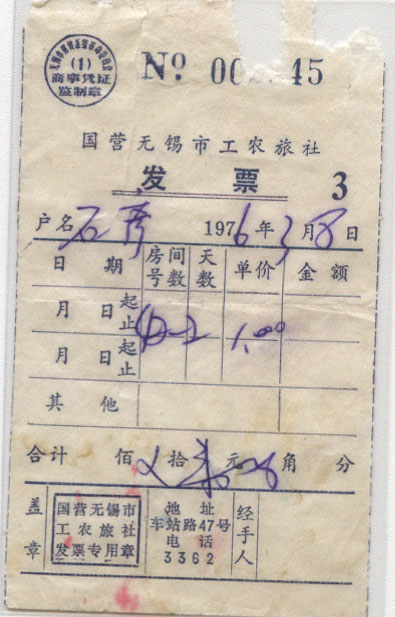 (1)
商事凭证
监制章
№ 00 45
国营无锡市工农旅社
发票 3
户名 石 1976年3月8日
日期 房间号数 天数 单价 金额
月 日起止 1.00
月 日起止
其他
合计 佰 拾 元 角 分
盖章
国营无锡市
工农旅社
发票专用章
地址
车站路47号
电话
3362
经手人